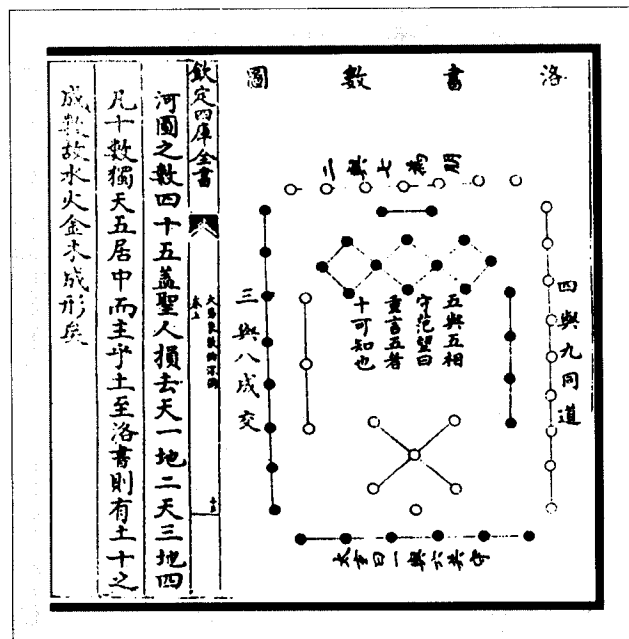 洛書數圖
二與七為朋
四與九同道
五與五相
守范望曰
重言五者
十可知也
三與八成交
太玄曰一與六共守
欽定四庫全書
大易象數鉤深圖
卷上
河圖之數四十五蓋聖人損去天一地二天三地四
凡十數獨天五居中而主乎土至洛書則有土十之
成數故水火金木成形矣